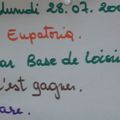 Lundi 28.07.20
Eupatoria.
ar Base de Loisi
c'est gagner.
are.